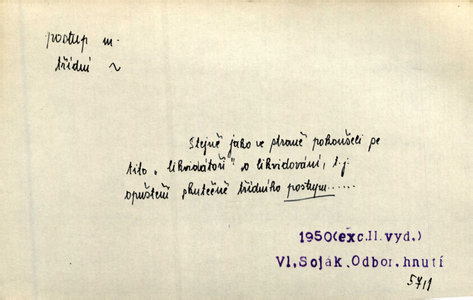 postup m.
třídní ~
Stejně jako ve straně pokoušeli se
tito „likvidátoři" o likvidování, t.j.
opuštění skutečně třídního postupu......
1950(exc.II.vyd.)
Vl.Soják.Odbor.hnutí
57,1